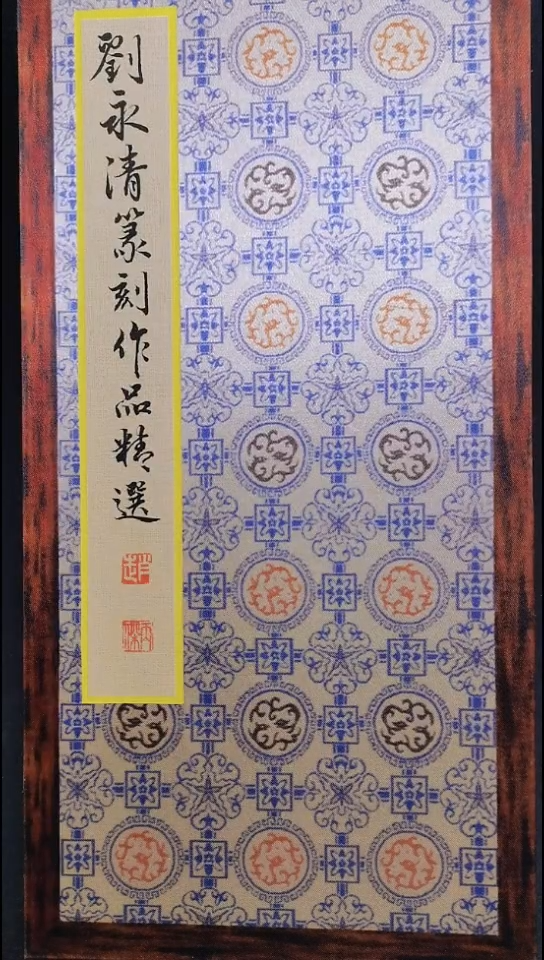 劉永清篆刻作品精選